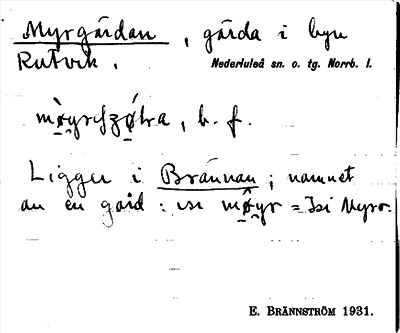 Myrgärdan, gärda i byn
Rutvik. Nederluleå sn. o. tg. Norrb. l.
b. f.
Ligger i Brännan; namnet
av en gård: = Isi Myro.
E. BRÄNNSTRÖM 1931.